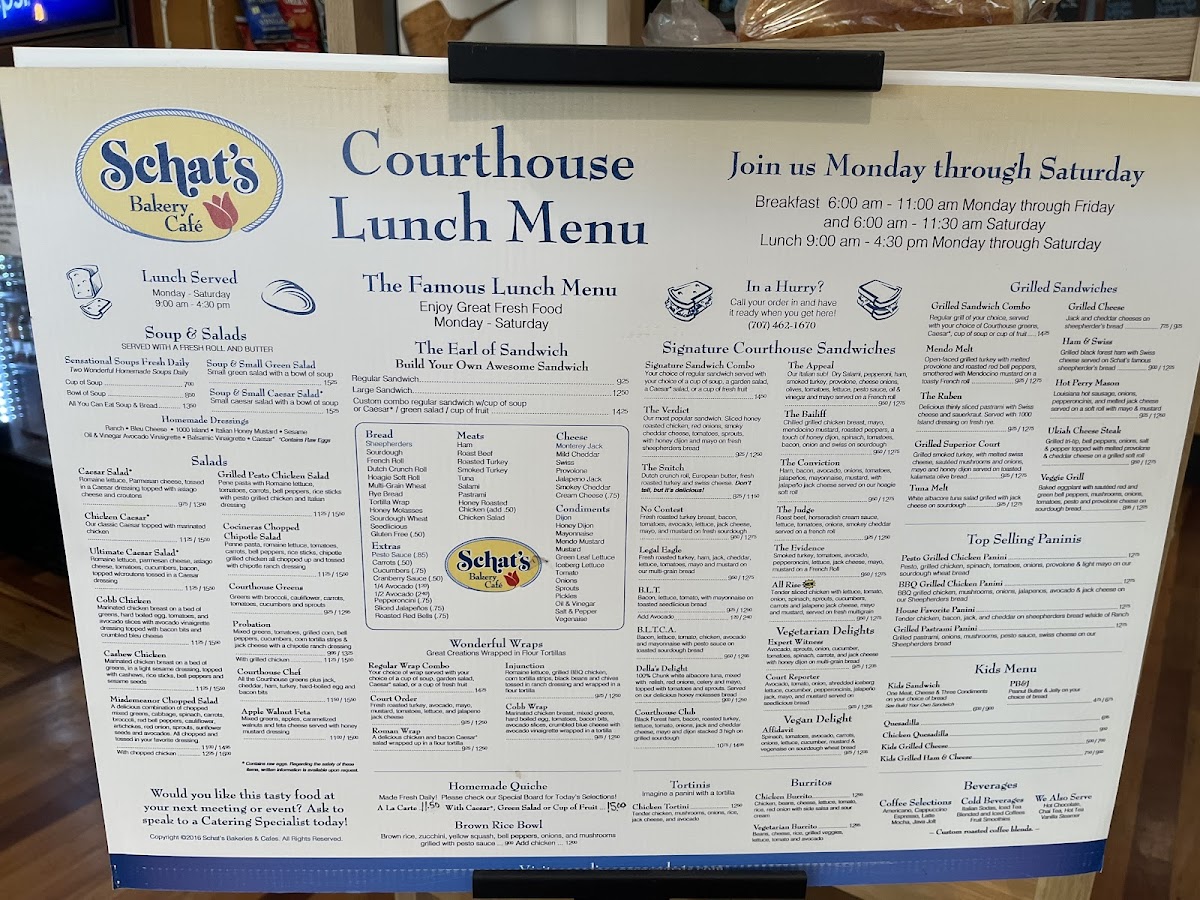 Schat's
Bakery
Café
Courthouse
Lunch Menu
Join us Monday through Saturday
Breakfast 6:00 am - 11:00 am Monday through Friday
and 6:00 am - 11:30 am Saturday
Lunch 9:00 am - 4:30 pm Monday through Saturday
Lunch Served
Monday - Saturday
9:00 am - 4:30 pm
Soup & Salads
SERVED WITH A FRESH ROLL AND BUTTER
Sensational Soups Fresh Daily
Two Wonderful Homemade Soups Daily
Cup of Soup
Bowl of Soup
All You Can Eat Soup & Bread
Soup & Small Green Salad
Small green salad with a bowl of soup
15²⁵
Soup & Small Caesar Salad*
Small caesar salad with a bowl of soup
15²⁵
Homemade Dressings
Ranch • Bleu Cheese • 1000 Island • Italian Honey Mustard • Sesame
Oil & Vinegar Avocado Vinaigrette • Balsamic Vinaigrette • Caesar* *Contains Raw Eggs
Salads
Caesar Salad*
Romaine lettuce, Parmesan cheese, tossed
in a Caesar dressing topped with asiago
cheese and croutons
Chicken Caesar*
Our classic Caesar topped with marinated
chicken
Ultimate Caesar Salad*
Romaine lettuce, parmesan cheese, asiago
cheese, tomatoes, cucumbers, bacon,
topped w/croutons tossed in a Caesar
dressing
Cobb Chicken
Marinated chicken breast on a bed of
greens, hard boiled egg, tomatoes, and
avocado slices with avocado vinaigrette
dressing topped with bacon bits and
crumbled bleu cheese
Cashew Chicken
Marinated chicken breast on a bed of
greens, in a light sesame dressing, topped
with cashews, rice sticks, bell peppers and
sesame seeds
Misdemeanor Chopped Salad
A delicious combination of chopped
mixed greens, cabbage, spinach, carrots,
broccoli, red bell peppers, cauliflower,
artichokes, red onion, sprouts, sunflower
seeds and avocados. All chopped and
tossed in your favorite dressing
With chopped chicken
Grilled Pesto Chicken Salad
Penne pasta with Romaine lettuce,
tomatoes, carrots, bell peppers, rice sticks
with pesto grilled chicken and Italian
dressing
Cocineras Chopped
Chipotle Salad
Penne pasta, romaine lettuce, tomatoes,
carrots, bell peppers, rice sticks, chipotle
grilled chicken all chopped up and tossed
with chipotle ranch dressing
Courthouse Greens
Greens with broccoli, cauliflower, carrots,
tomatoes, cucumbers and sprouts
Probation
Mixed greens, tomatoes, grilled corn, bell
peppers, cucumbers, corn tortilla strips &
jack cheese with a chipotle ranch dressing
With grilled chicken
Courthouse Chef
All the Courthouse greens plus jack,
cheddar, ham, turkey, hard-boiled egg and
bacon bits
Apple Walnut Feta
Mixed greens, apples, caramelized
walnuts and feta cheese served with honey
mustard dressing
* Contains raw eggs. Regarding the safety of these
items, written information is available upon request.
Would you like this tasty food at
your next meeting or event? Ask to
speak to a Catering Specialist today!
Copyright ©2016 Schat's Bakeries & Cafes. All Rights Reserved.
The Famous Lunch Menu
Enjoy Great Fresh Food
Monday - Saturday
The Earl of Sandwich
Build Your Own Awesome Sandwich
Regular Sandwich 9²⁵
Large Sandwich 12⁵⁰
Custom combo regular sandwich w/cup of soup
or Caesar* / green salad / cup of fruit 14²⁵
Bread
Sheepherders
Sourdough
French Roll
Dutch Crunch Roll
Hoagie Soft Roll
Multi-Grain Wheat
Rye Bread
Tortilla Wrap
Honey Molasses
Sourdough Wheat
Seedlicious
Gluten Free (.50)
Extras
Pesto Sauce (.85)
Carrots (.50)
Cucumbers (.75)
Cranberry Sauce (.50)
1/4 Avocado
1/2 Avocado
Pepperoncini (.75)
Sliced Jalapeños (.75)
Roasted Red Bells (.75)
Meats
Ham
Roast Beef
Roasted Turkey
Smoked Turkey
Tuna
Salami
Pastrami
Honey Roasted
Chicken (add .50)
Chicken Salad
Schat's
Bakery
Café
Cheese
Monterey Jack
Mild Cheddar
Swiss
Provolone
Jalapeno Jack
Smokey Cheddar
Cream Cheese (.75)
Condiments
Dijon
Honey Dijon
Mayonnaise
Mendo Mustard
Mustard
Green Leaf Lettuce
Iceberg Lettuce
Tomato
Onions
Sprouts
Pickles
Oil & Vinegar
Salt & Pepper
Vegenaise
Wonderful Wraps
Great Creations Wrapped in Flour Tortillas
Regular Wrap Combo
Your choice of wrap served with your
choice of a cup of soup, garden salad,
Caesar* salad, or a cup of fresh fruit
Court Order
Fresh roasted turkey, avocado, mayo,
mustard, tomatoes, lettuce, and jalapeno
jack cheese
Roman Wrap
A delicious chicken and bacon Caesar*
salad wrapped up in a flour tortilla
Injunction
Romaine lettuce, grilled BBQ chicken,
corn tortilla strips, black beans and chives
tossed in ranch dressing and wrapped in a
flour tortilla
Cobb Wrap
Marinated chicken breast, mixed greens,
hard boiled egg, tomatoes, bacon bits,
avocado slices, crumbled blue cheese with
avocado vinaigrette wrapped in a tortilla
Homemade Quiche
Made Fresh Daily! Please check our Special Board for Today's Selections!
A La Carte 11.50 With Caesar*, Green Salad or Cup of Fruit 15.00
Brown Rice Bowl
Brown rice, zucchini, yellow squash, bell peppers, onions, and mushrooms
grilled with pesto sauce ... Add chicken ...
In a Hurry?
Call your order in and have
it ready when you get here!
(707) 462-1670
Signature Courthouse Sandwiches
Signature Sandwich Combo
Your choice of regular sandwich served with
your choice of a cup of soup, a garden salad,
Caesar* salad, or a cup of fresh fruit
The Verdict
Our most popular sandwich. Sliced honey
roasted chicken, red onions, smoky
cheddar cheese, tomatoes, sprouts,
with honey dijon and mayo on fresh
sheepherders bread
The Snitch
Dutch crunch roll, European butter, fresh
roasted turkey and swiss cheese. Don't
tell, but it's delicious!
No Contest
Fresh roasted turkey breast, bacon,
tomatoes, avocado, lettuce, jack cheese,
mayo, and mustard on fresh sourdough
Legal Eagle
Fresh roasted turkey, ham, jack, cheddar,
lettuce, tomatoes, mayo and mustard on
our multi-grain bread
B.L.T.
Bacon, lettuce, tomato, with mayonnaise on
toasted seedlicious bread
Add Avocado
B.L.T.C.A.
Bacon, lettuce, tomato, chicken, avocado
and mayonnaise with pesto sauce on
toasted sourdough bread
Della's Delight
100% Chunk white albacore tuna, mixed
with relish, red onions, celery and mayo,
topped with tomatoes and sprouts. Served
on our delicious honey molasses bread
Courthouse Club
Black Forest ham, bacon, roasted turkey,
lettuce, tomato, onions, jack and cheddar
cheese, mayo and dijon stacked 3 high on
grilled sourdough
Tortinis
Imagine a panini with a tortilla
Chicken Tortini
Tender chicken, mushrooms, onions, rice,
jack cheese, and avocado
The Appeal
Our Italian sub! Dry Salami, pepperoni, ham,
smoked turkey, provolone, cheese, onions,
olives, tomatoes, lettuce, pesto sauce, oil &
vinegar and mayo served on French roll
The Bailiff
Chilled grilled chicken breast, mayo,
mendocino mustard, roasted peppers, a
touch of honey dijon, spinach, tomatoes,
bacon, onion and swiss on sourdough
The Conviction
Ham, bacon, avocado, onions, tomatoes,
jalapeños, mayonnaise, mustard, with
jalapeño jack cheese served on our hoagie
soft roll
The Judge
Roast beef, horseradish cream sauce,
lettuce, tomatoes, onions, smokey cheddar
served on a french roll
The Evidence
Smoked turkey, tomatoes, avocado,
pepperoncini, lettuce, jack cheese, mayo,
mustard on a French Roll
All Rise
Tender sliced chicken with lettuce, tomato,
onion, spinach, sprouts, cucumbers,
carrots and jalapeno jack cheese, mayo and
mustard, served on fresh multigrain
Vegetarian Delights
Expert Witness
Avocado, sprouts, onion, cucumber,
tomatoes, spinach, carrots, and jack cheese
with honey dijon on multi-grain bread
Court Reporter
Avocado, tomato, onion, shredded iceberg
lettuce, cucumber, pepperoncinis, jalapeño
jack, mayo, and mustard on toasted
seedlicious bread
Vegan Delight
Affidavit
Spinach, tomatoes, avocado, carrots,
onions, lettuce, cucumber, mustard &
vegenaise on sourdough wheat bread
Burritos
Chicken Burrito
Chicken, beans, cheese, lettuce, tomato,
rice, red onion with side salsa and sour
cream
Vegetarian Burrito
Beans, cheese, rice, grilled veggies,
lettuce, tomato and avocado
Grilled Sandwiches
Grilled Sandwich Combo
Regular grill of your choice, served
with your choice of Courthouse greens,
Caesar*, cup of soup or cup of fruit
Mendo Melt
Open-faced grilled turkey with melted
provolone and roasted red bell peppers,
smothered with Mendocino mustard on a
toasty French roll
The Ruben
Delicious thinly sliced pastrami with Swiss
cheese and sauerkraut. Served with 1000
Island dressing on fresh rye.
Grilled Superior Court
Grilled smoked turkey, with melted swiss
cheese, sautéed mushrooms and onions,
mayo and honey dijon served on toasted
kalamata olive bread
Tuna Melt
White albacore tuna salad grilled with jack
cheese on sourdough
Grilled Cheese
Jack and cheddar cheeses on
sheepherder's bread
Ham & Swiss
Grilled black forest ham with Swiss
cheese served on Schat's famous
sheepherder's bread
Hot Perry Mason
Louisiana hot sausage, onions,
pepperoncinis, and melted jack cheese
served on a soft roll with mayo & mustard
Ukiah Cheese Steak
Grilled tri-tip, bell peppers, onions, salt
& pepper topped with melted provolone
& cheddar cheese on a grilled soft roll
Veggie Grill
Baked eggplant with sautéed red and
green bell peppers, mushrooms, onions,
tomatoes, pesto and provolone cheese on
sourdough bread
Top Selling Paninis
Pesto Grilled Chicken Panini
Pesto, grilled chicken, spinach, tomatoes, onions, provolone & light mayo on our
sourdough wheat bread
BBQ Grilled Chicken Panini
BBQ grilled chicken, mushrooms, onions, jalapenos, avocado & jack cheese on
our Sheepherders bread
House Favorite Panini
Tender chicken, bacon, jack, and cheddar on sheepherder bread w/side of Ranch
Grilled Pastrami Panini
Grilled pastrami, onions, mushrooms, pesto sauce, swiss cheese on our
Sheepherders bread
Kids Menu
Kids Sandwich
One Meat, Cheese & Three Condiments
on your choice of bread
See Build Your Own Sandwich
PB&J
Peanut Butter & Jelly on your
choice of bread
Quesadilla
Chicken Quesadilla
Kids Grilled Cheese
Kids Grilled Ham & Cheese
Beverages
Coffee Selections
Americano, Cappuccino
Espresso, Latte
Mocha, Java Jolt
Cold Beverages
Italian Sodas, Iced Tea
Blended and Iced Coffees
Fruit Smoothies
We Also Serve
Hot Chocolate,
Chai Tea, Hot Tea
Vanilla Steamer
~ Custom roasted coffee blends. ~